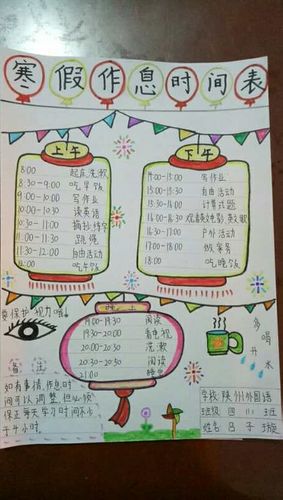 寒假作息时间表
上午
8:00 起床洗漱
8:30-9:00 吃早饭
9:00-10:00 写作业
10:00-10:30 读英语
10:30-11:00
11:00-11:30 跳绳
11:30-12:00 自由活动
12:00 吃午饭
下午
14:00-15:00 写作业
15:00-15:30 自由活动
15:30-16:00 计算式题
16:00-16:30 观看英文电影 英文歌
16:30-17:00 户外活动
17:00-18:00 做家务
18:00 吃晚饭
晚上
19:00-19:30 阅读
19:30-20:00 看电视
20:00-20:30 洗漱
20:30-20:50 阅读
21:00 睡觉
要保护视力哦
多喝开水
备注
如有事情,作息时
间可以调整,但必须
保证每天学习时间不少
于4小时。
学校 陕州外国语
班级 四 班
姓名 吕子璇